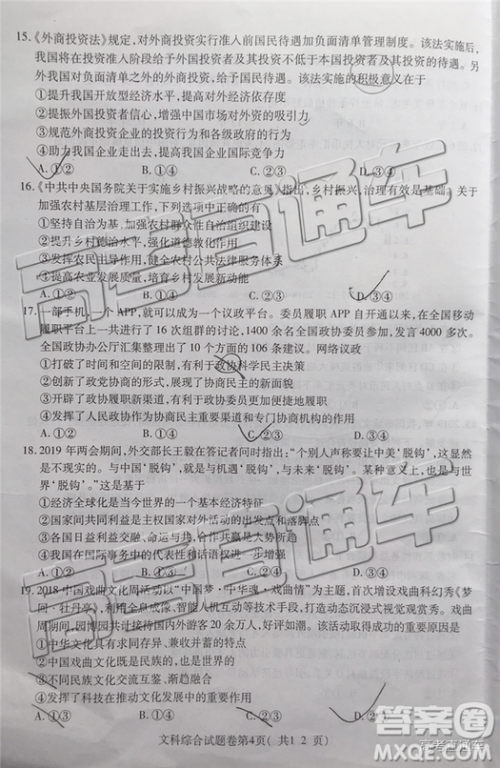 15.《外商投资法》规定，对外商投资实行准入前国民待遇加负面清单管理制度。该法实施后，
我国将在投资准入阶段给予外国投资者及其投资不低于本国投资者及其投资的待遇。另
外我国对负面清单之外的外商投资，给予国民待遇。该法实施的积极意义在于
①提升我国开放型经济水平，提高对外经济依存度
②提振外国投资者信心，增强中国市场对外资的吸引力
③规范外商企业的投资行为和中国政府的行政行为
④助力我国企业走出去，提高我国企业国际竞争力
A.①② B.①④ C.②③ D.③④
16.《中共中央国务院关于实施乡村振兴战略的意见》指出，乡村振兴，治理有效是基础。关于
加强农村基层治理工作，下列选项中正确的有
①坚持自治为基，加强农村群众性自治组织建设
②提升乡村德治水平，强化道德教化作用
③发挥农民主导作用，健全农村公共法律服务体系
④提高农业发展质量，培育乡村发展新动能
A.①② B.①④ C.②③ D.③④
17.一部手机，一个APP，就可以有一个议政平台。委员履职APP自开通以来，在全国移动
履职平台上进行了16次组群讨论，1400余名全国政协委员参与，发表意见4000余次。
全国政协办公厅汇集整理出了10个方面的106条建议。网络议政
①打破了时间和空间的限制，有利于政协科学民主决策
②创新了政协协商形式，拓展了民主协商的新面貌
③开辟了政协履职新渠道，使委员履职更加方便快捷地
④发挥了人民政协作为协商民主重要渠道和专门协商机构的作用
A.①② B.①③ C.②④ D.③④
18.2019年两会期间，外交部长王毅在答记者问时指出：“个别人声称要让中美‘脱钩’，这
显然是不现实的。与中国‘脱钩’，就是与机遇‘脱钩’，与未来‘脱钩’。某种意义上，也是与
世界‘脱钩’。”这是基于
①经济全球化是当今世界的一个基本特征
②国家间共同利益是主权国家对外活动的出发点和落脚点
③各国日益利益交融、命运与共，合作共赢是大势所趋
④我国在国际事务中的代表性和话语权进一步增强
A.①② B.①③ C.②④ D.③④
19.2018中国戏曲文化周活动以“中国梦·中华魂·戏曲情”为主题，首次增设戏曲科幻秀《梦
回·牡丹亭》，利用全息成像、智能机器人互动等技术，打造动态沉浸式视觉观赏秀。戏曲
周期间，园博园共计接待国内外游客20余万人，好评如潮。该活动取得成功的主要原因是
①中华文化具有求同存异、兼收并蓄的特征
②中国戏曲文化既是民族的，也是世界的
③不同民族文化交流鉴、渐趋融合
④发挥了科技在推动文化发展中的重要作用
A.①② B.①③ C.②④ D.③④
文科综合试题卷第4页( 共1 2 页)
高考直通车
高考直通车
答案圈
MXQE.COM